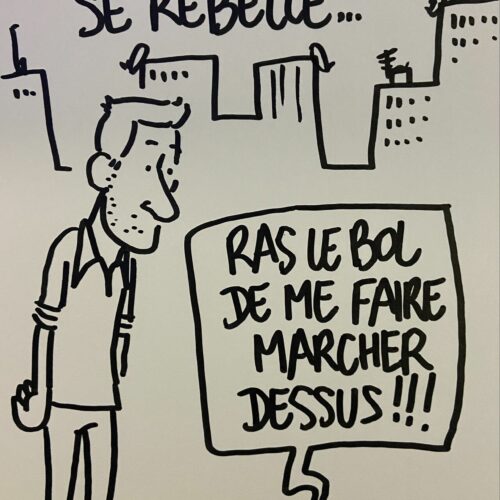 SE REBELLE...
RAS LE BOL
DE ME FAIRE
MARCHER
DESSUS!!!